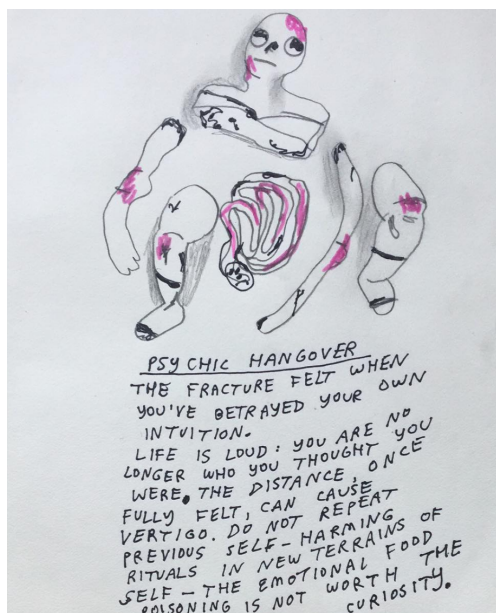 PSYCHIC HANGOVER
THE FRACTURE FELT WHEN
YOU'VE BETRAYED YOUR OWN
INTUITION.
LIFE IS LOUD: YOU ARE NO
LONGER WHO YOU THOUGHT YOU
WERE. THE DISTANCE, ONCE
FULLY FELT, CAN CAUSE
VERTIGO. DO NOT REPEAT
PREVIOUS SELF-HARMING
RITUALS IN NEW TERRAINS OF
SELF - THE EMOTIONAL FOOD
POISONING IS NOT WORTH THE
CURIOSITY.